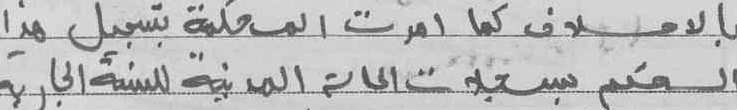 بالاصلاف كما امرت المحكمة بتسجيل هذا
الحكم بسجلات الحالة المدنية للسنة الجارية